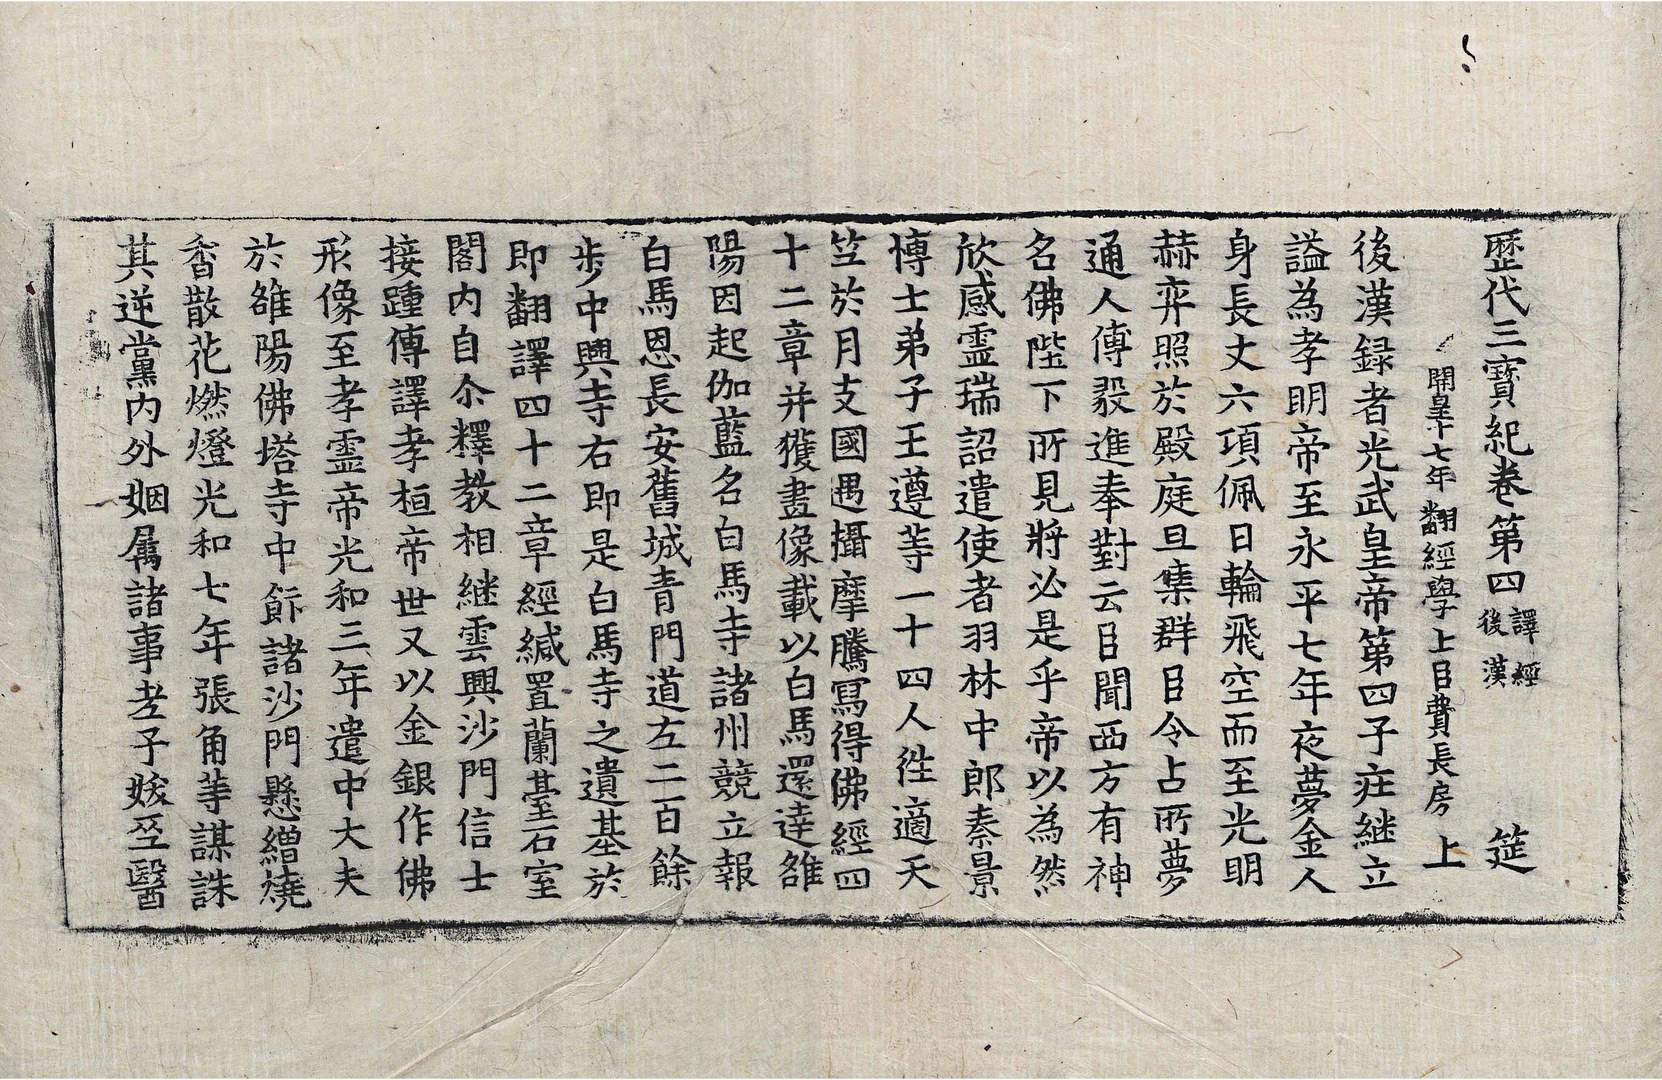 歷代三寶紀卷第四 譯經後漢 筵
開皇十七年翻經學上臣費長房上
後漢録者光武皇帝第四子庄継立
謚為孝明帝至永平七年夜夢金人
身長丈六項佩日輪飛空而至光明
赫弈照於殿庭旦集群臣令占所夢
通人傅毅進奉對云臣聞西方有神
名佛陛下所見將必是乎帝以為然
欣感霊瑞詔遣使者羽林中郎秦景
博士弟子王遵䓁一十四人徃適天
笁於月支國遇攝摩騰冩得佛經四
十二章并獲畫像載以白馬還達雒
陽因起伽藍名白馬寺諸州競立報
白馬恩長安舊城青門道左二百餘
步中興寺右即是白馬寺之遺基於
即翻譯四十二章經緘置蘭臺石室
閣内自尒釋教相継雲興沙門信士
接踵傳譯孝桓帝世又以金銀作佛
形像至孝霊帝光和三年遣中大夫
於雒陽佛塔寺中飾諸沙門懸繒燒
香散花燃燈光和七年張角䓁謀誅
其逆黨内外姻属諸事老子妖巫醫